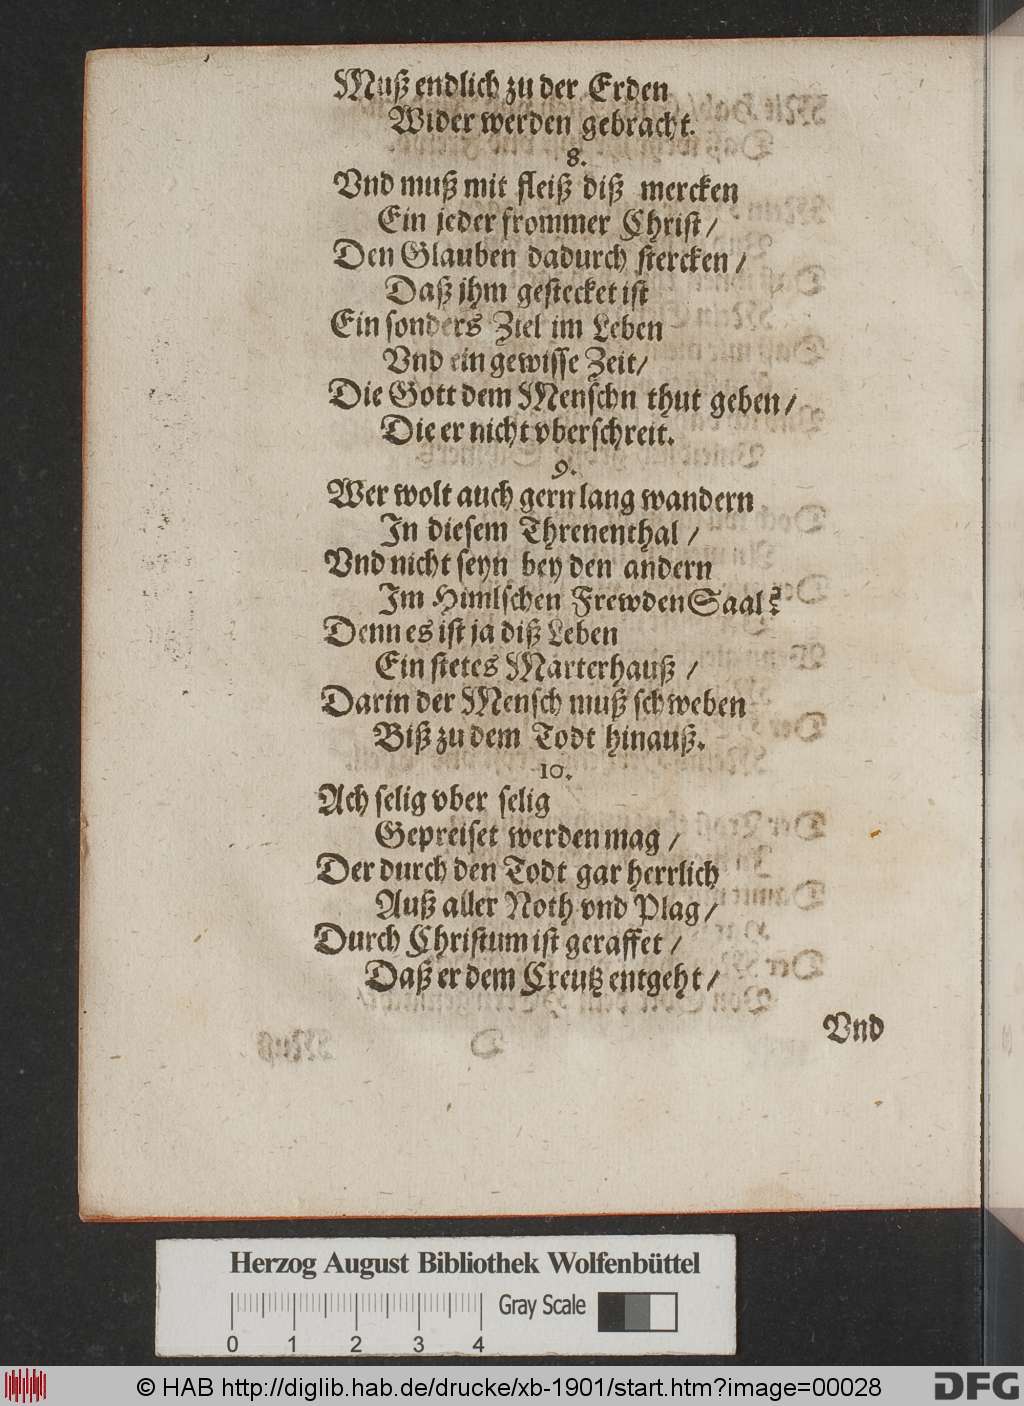 Muß endlich zu der Erden
Wider werden gebracht.
8.
Vnd muß mit fleiß diß mercken
Ein jeder frommer Christ /
Den Glauben dadurch stercken /
Daß jhm gestecket ist
Ein sonders Ziel im Leben
Vnd ein gewisse Zeit /
Die Gott dem Menschn thut geben /
Die er nicht vberschreit.
9.
Wer wolt auch gern lang wandern
In diesem Threnenthal /
Vnd nicht seyn bey den andern
Im Himlschen Frewden Saal?
Denn es ist ja diß Leben
Ein stetes Marterhauß /
Darin der Mensch muß schweben
Biß zu dem Todt hinauß.
10.
Ach selig vber selig
Gepreiset werden mag /
Der durch den Todt gar herrlich
Auß aller Noth vnd Plag /
Durch Christum ist geraffet /
Daß er dem Creutz entgeht /
Vnd
Herzog August Bibliothek Wolfenbüttel
Gray Scale
0 1 2 3 4
© HAB http://diglib.hab.de/drucke/xb-1901/start.htm?image=00028
DFG